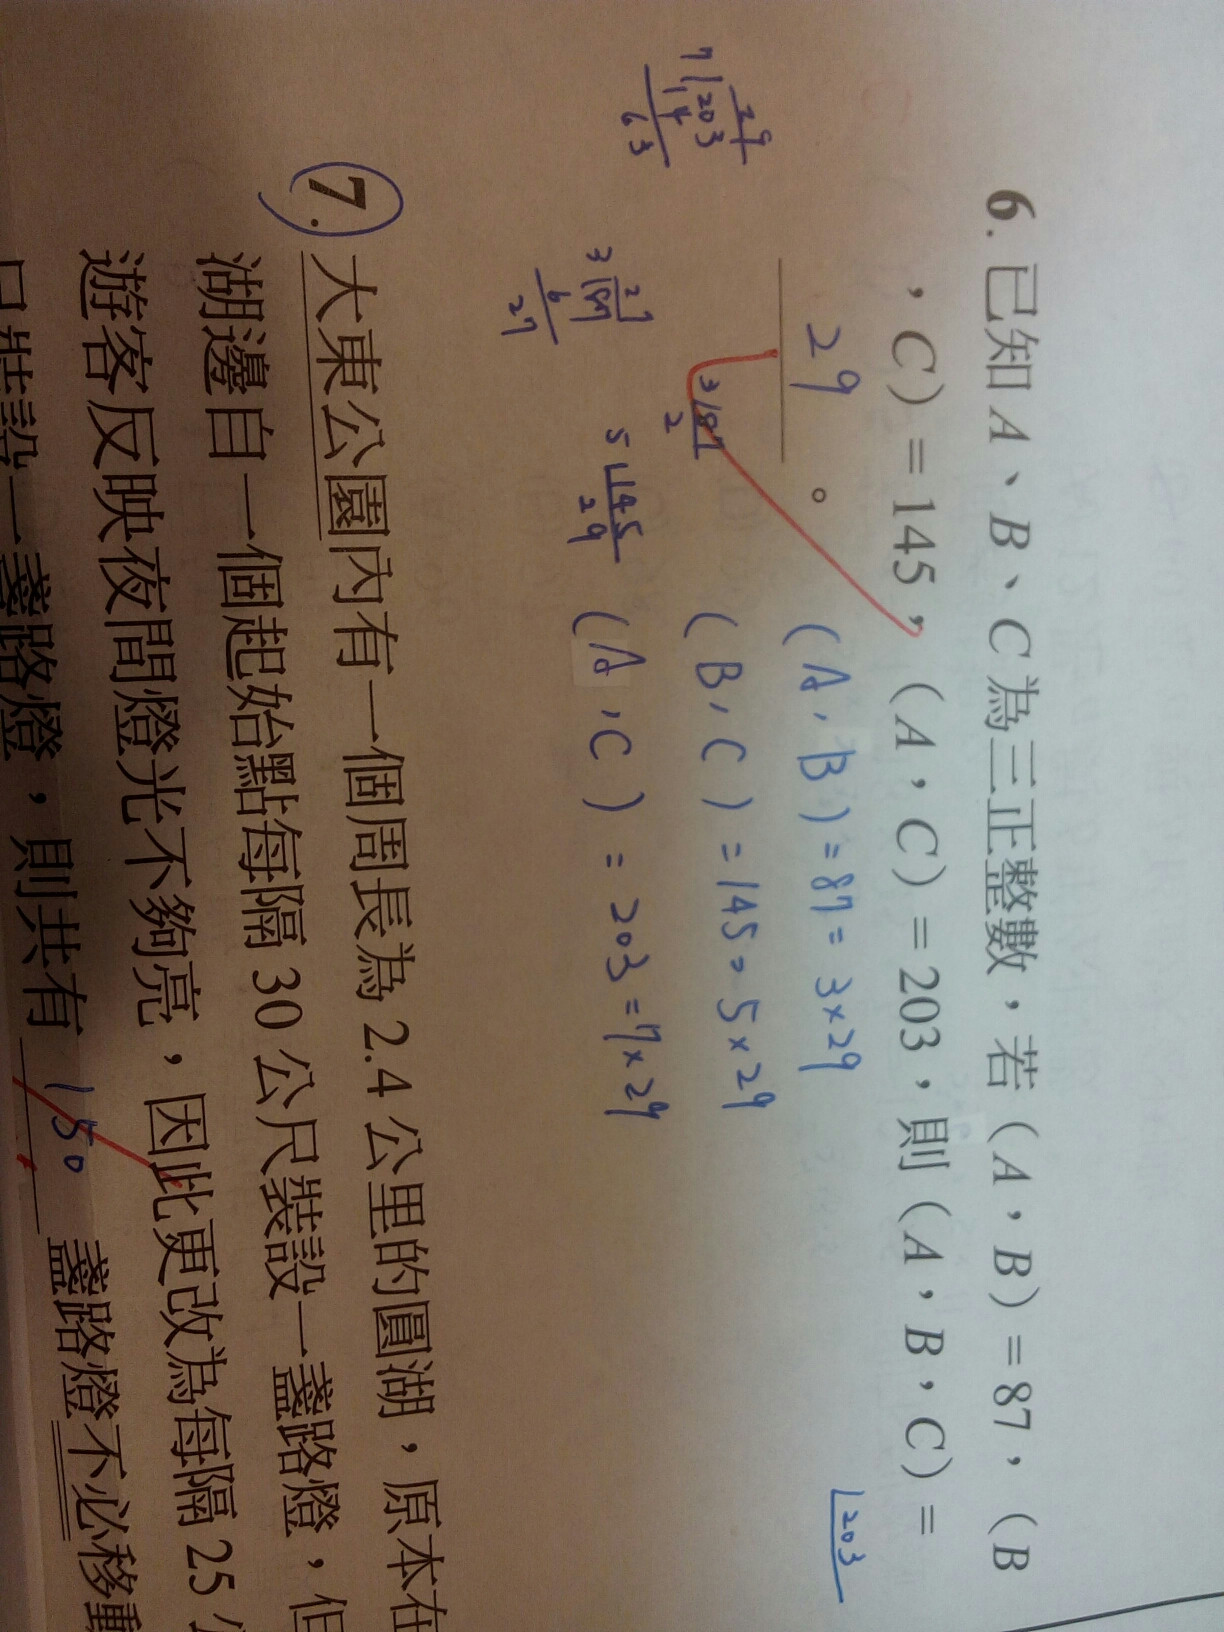 6. 已知 A、B、C 為三正整數，若（A，B）＝87，（B
，C）＝145，（A，C）＝203，則（A，B，C）＝
29 。
203
(A,B)=87=3×29
(B,C)=145=5×29
(A,C)=203=7×29
29
7 203
14
63
3 87
2
27
3 87
6
27
5 145
29
7. 大東公園內有一個周長為 2.4 公里的圓湖，原本在
湖邊自一個起始點每隔 30 公尺裝設一盞路燈，但
遊客反映夜間燈光不夠亮，因此更改為每隔 25
只裝設一盞路燈，則共有 150 盞路燈不必移動